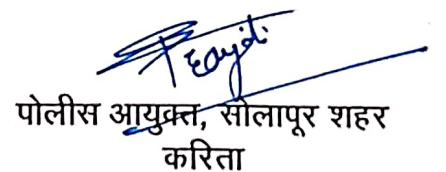 पोलीस आयुक्त, सोलापूर शहर
करिता